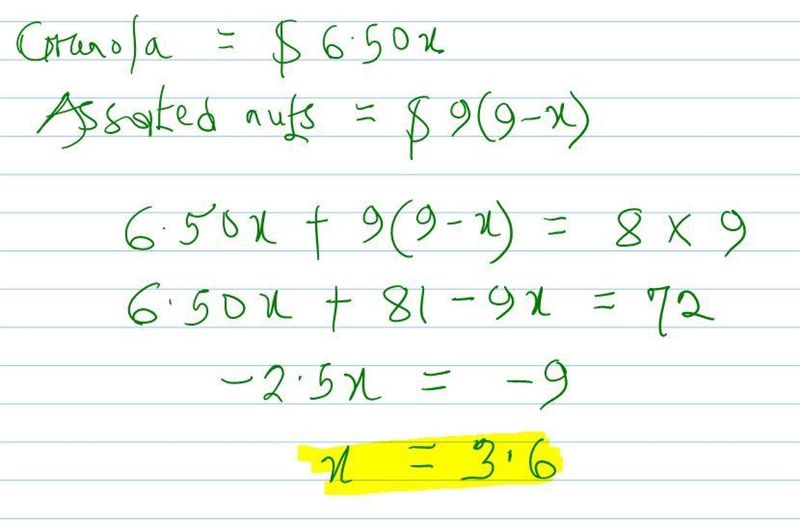 Granola = $ 6.50x
Assorted nuts = $ 9(9-x)
6.50x + 9(9-x) = 8 × 9
6.50x + 81 - 9x = 72
-2.5x = -9
x = 3.6